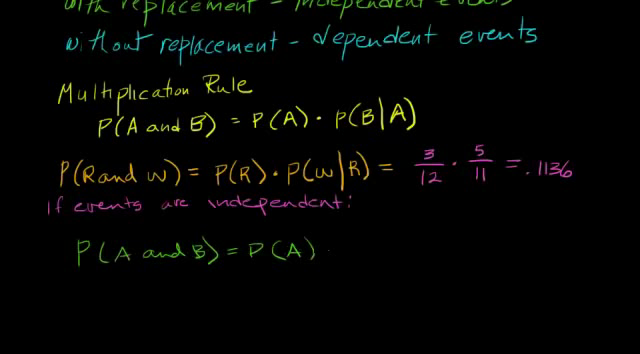 with replacement - independent events
without replacement - dependent events
Multiplication Rule
P(A and B) = P(A) · P(B|A)
P(R and W) = P(R) · P(W|R) = 3/12 · 5/11 = .1136
If events are independent:
P(A and B) = P(A) ·